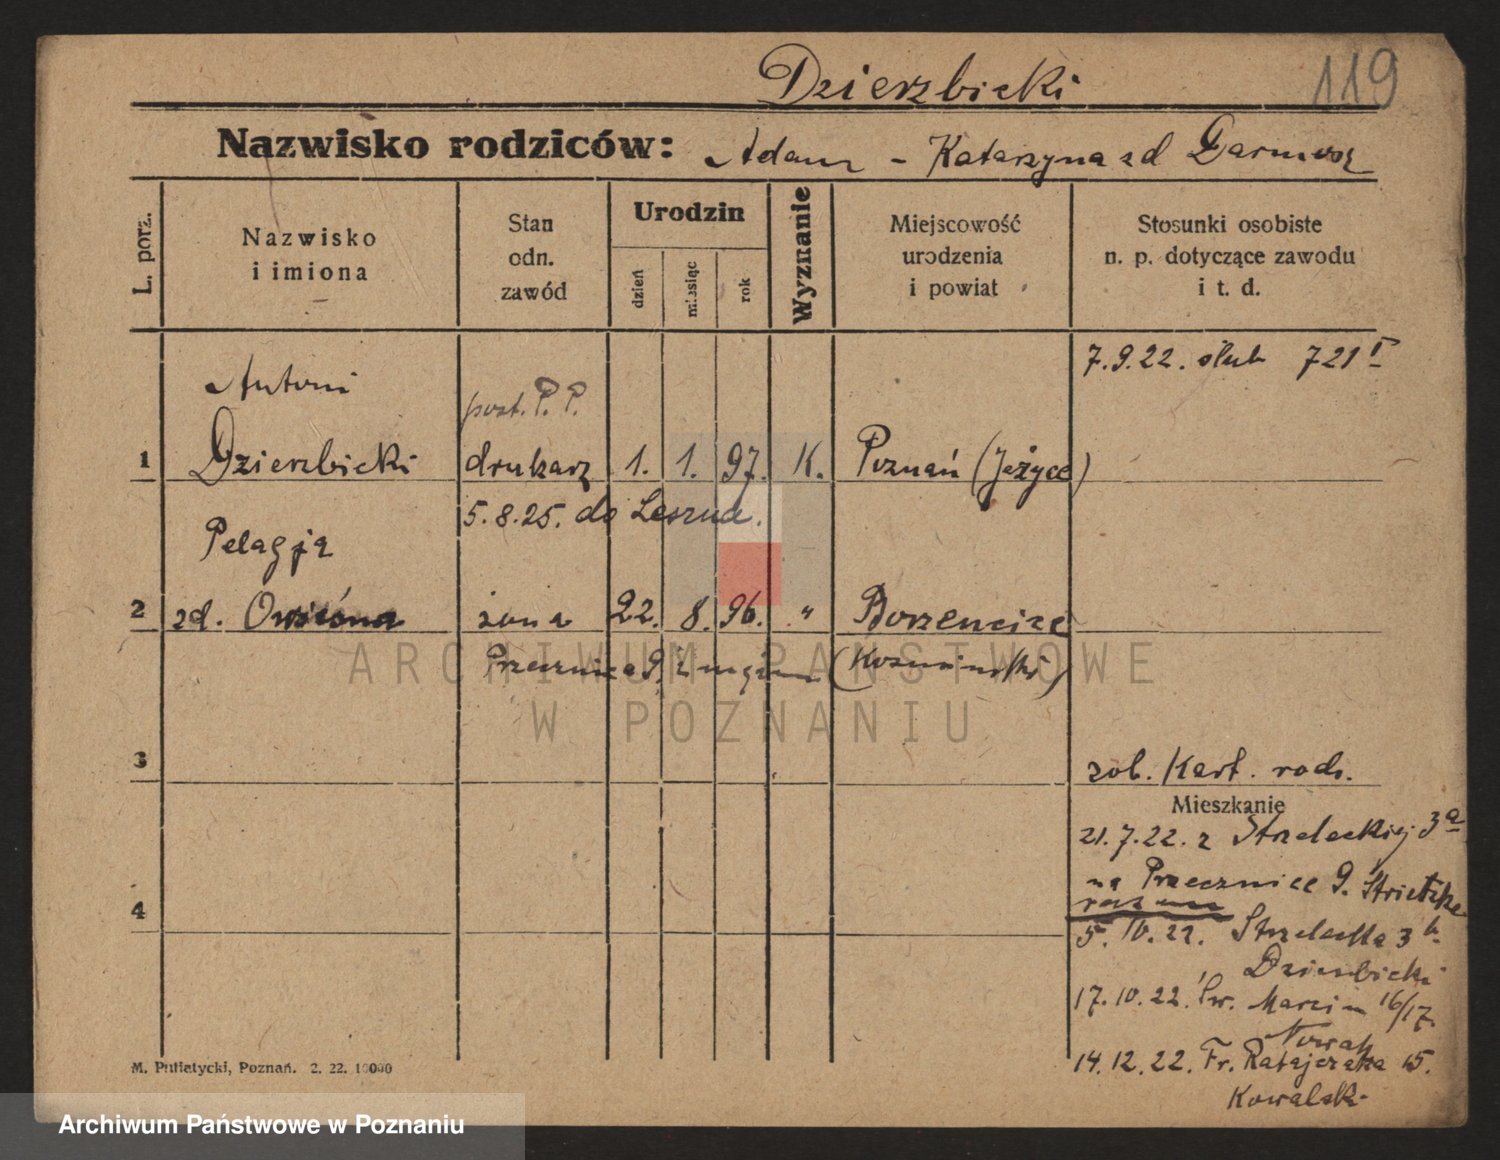 Dzierzbicki 119
Nazwisko rodziców: Adam - Katarzyna zd
L. porz.
Nazwisko
i imiona
Stan
odn.
zawód
Urodzin
dzień
miesiąc
rok
Wyznanie
Miejscowość
urodzenia
i powiat
Stosunki osobiste
n. p. dotyczące zawodu
i t. d.
7.9.22. ślub 721 I
Antoni
post. P. P.
1 Dzierzbicki drukarz 1. 1. 97. K. Poznań (Jeżyce)
5.8.25. do Leszna.
Pelagja
2 zd. żona 22. 8. 96. " Borzencice
Przecznica 9. z mężem (Koźmiński)
ARCHIWUM PAŃSTWOWE
W POZNANIU
3
zob. Kart. rodz.
Mieszkanie
21.7.22. z Strzeleckiej 3a
na Przecznice 9. Strietzke
4
5.10.22. Strzelecka 3
Dzierzbicki
17.10.22. Św. Marcin 16/17
Nowak
14.12.22. Fr. Ratajczaka 15.
Kowalski
M. Putiatycki, Poznań. 2. 22. 10000
Archiwum Państwowe w Poznaniu